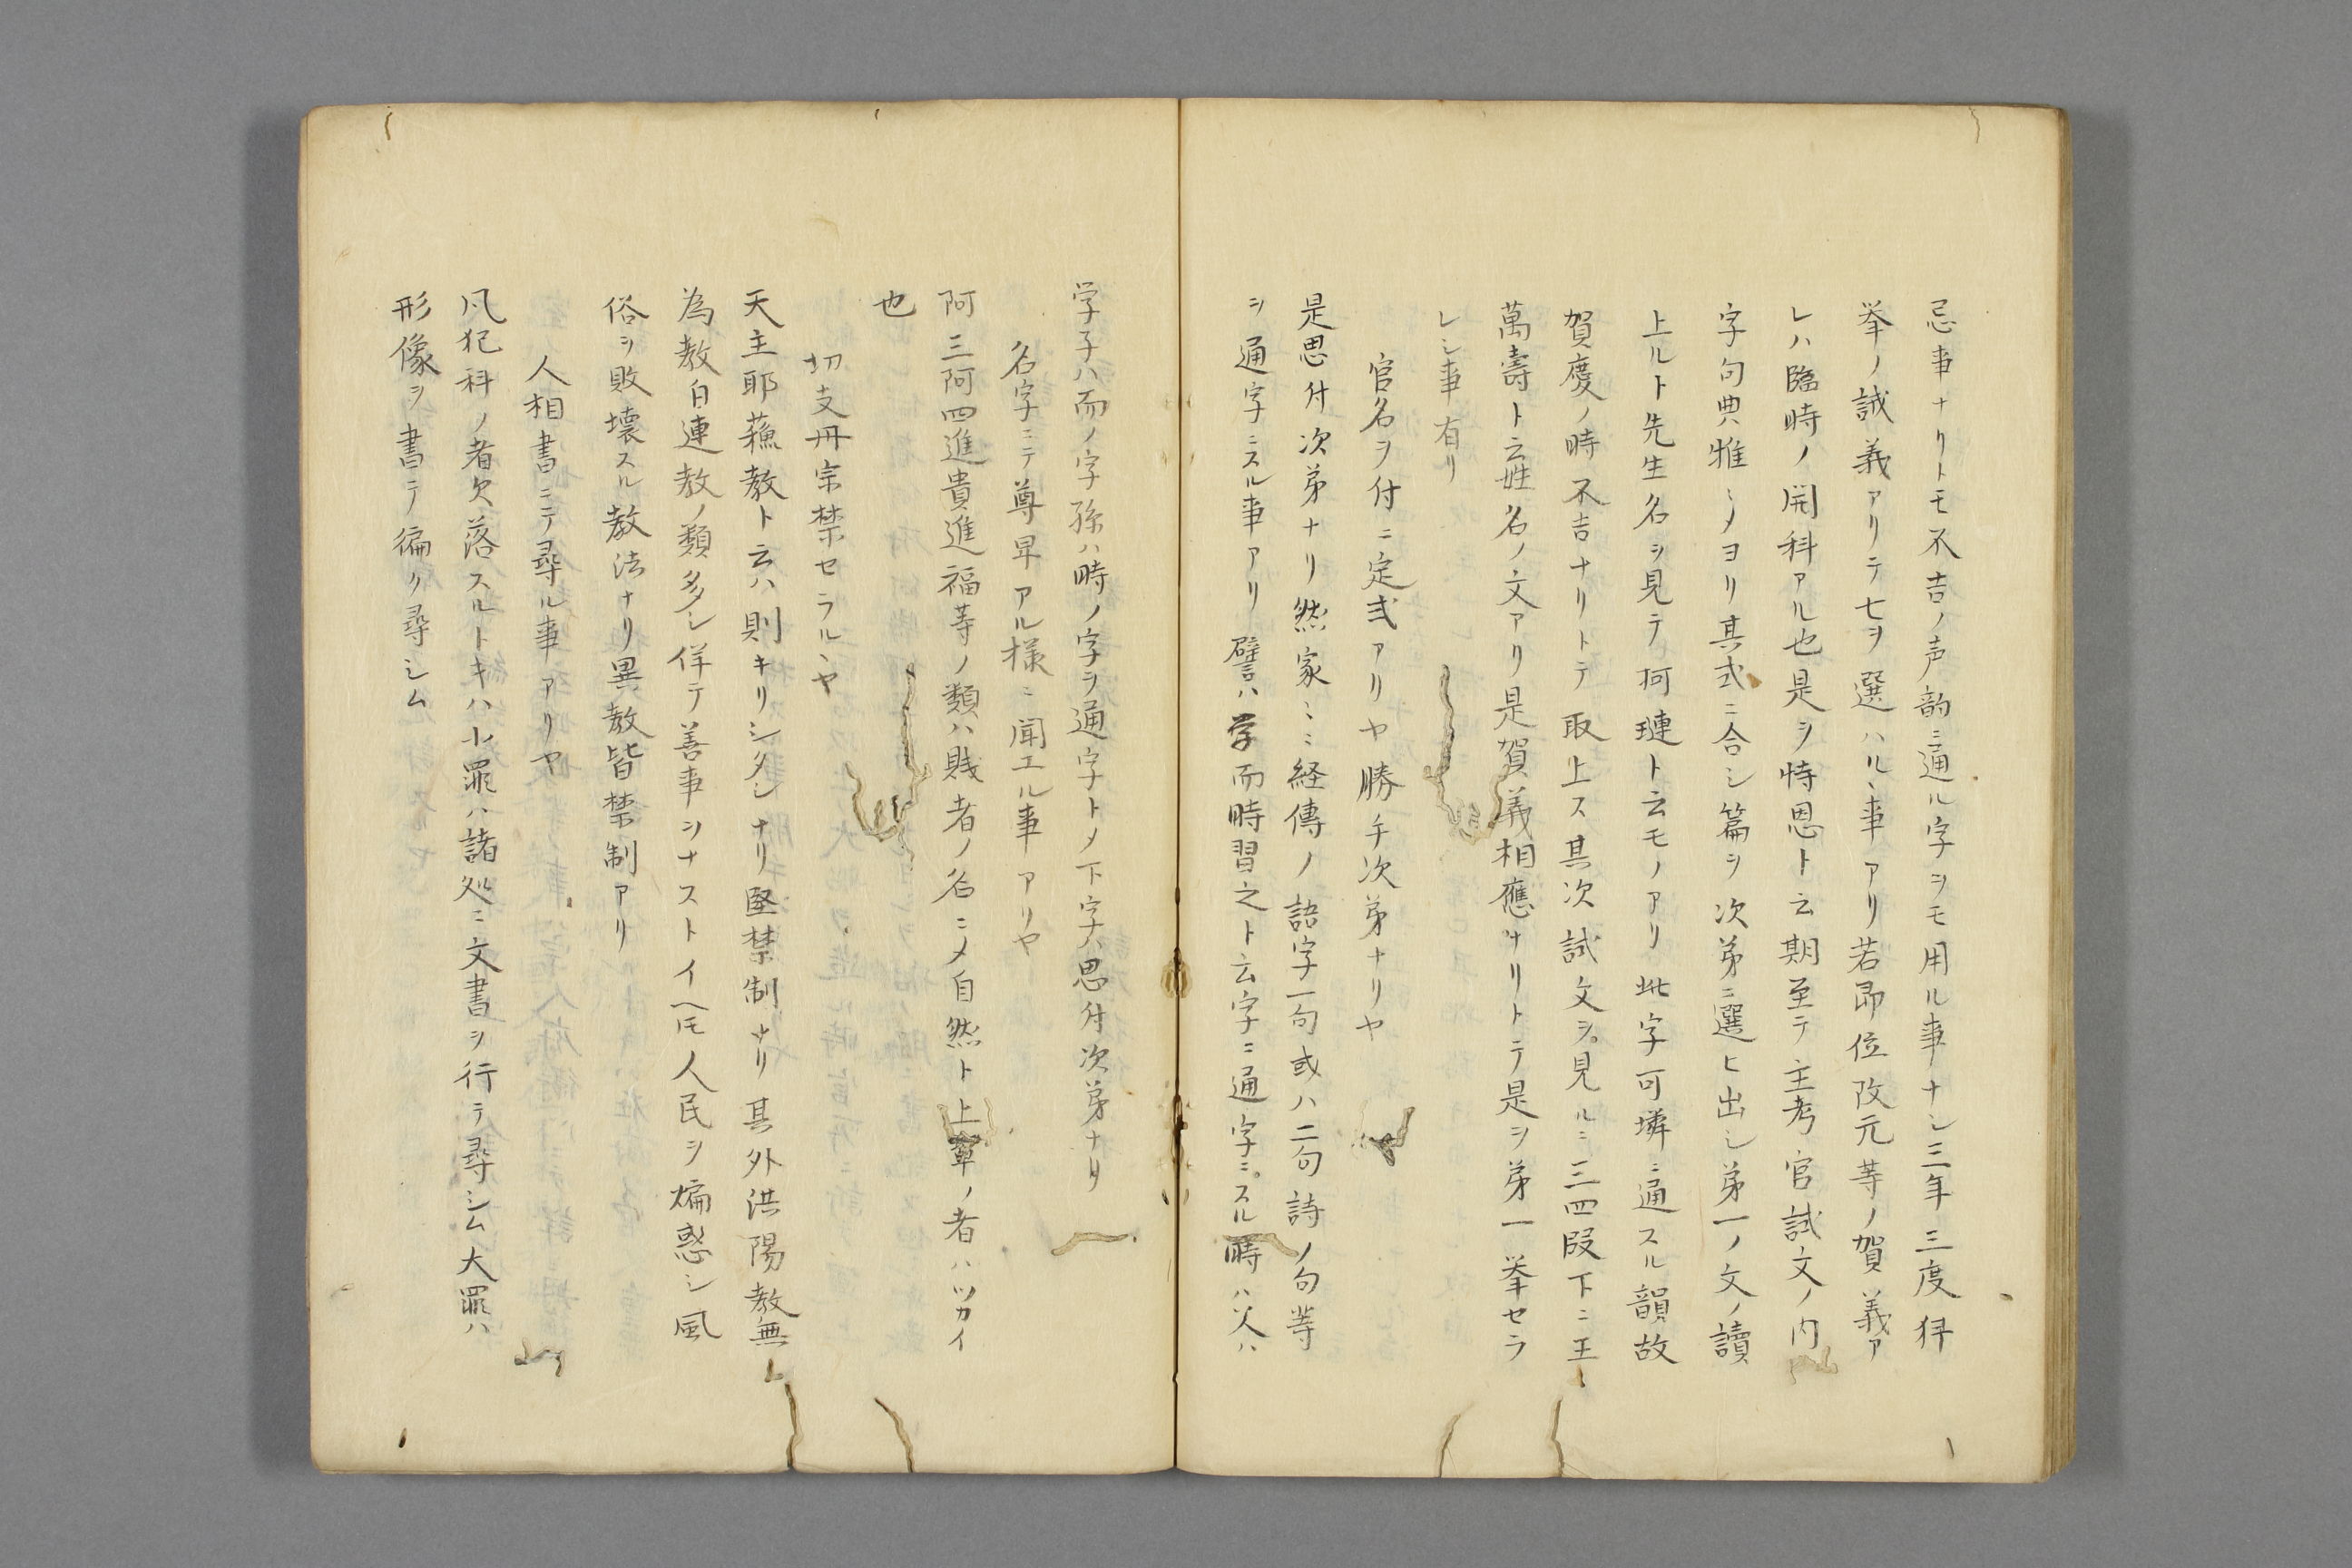 忌事ナリトモ不吉ノ声韵ニ通ル字ヲモ用ル事ナシ三年三度科
挙ノ誠義アリテ七ヲ選ハルヽ事アリ若即位改元等ノ賀義ア
レハ臨時ノ開科アル也是ヲ特恩ト云期至テ主考官試文ノ内
字句典雅ニメヨリ其式ニ合シ篇ヲ次第ニ選ヒ出シ第一ノ文ノ讀
上ルト先生名ヲ見テ何璉ト云モノアリ此字可憐ニ通スル韻故
賀慶ノ時不吉ナリトテ取上ス其次試文ヲ見ルニ三四段下ニ王
萬壽ト云姓名ノ文アリ是賀義相應ナリトテ是ヲ第一挙セラ
レシ事有リ
官名ヲ付ニ定式アリヤ勝手次第ナリヤ
是思付次第ナリ然家〻ニ経傳ノ語字一句或ハ二句詩ノ句等
ヲ通字ニスル事アリ譬ハ学而時習之ト云字ニ通字ニスル時ハ父ハ
学子ハ而ノ字孫ハ時ノ字ヲ通字トメ下字ハ思付次第ナリ
名字ニテ尊卑アル様ニ聞エル事アリヤ
阿三阿四進貴進福等ノ類ハ賎者ノ名ニメ自然ト上輩ノ者ハツカイ
也
切支丹宗禁セラルヽヤ
天主耶蘓教ト云ハ則キリシタンナリ堅禁制ナリ其外洪陽教無
為教白連教ノ類多シ佯テ善事ヲナストイヘ𪜈人民ヲ煽惑シ風
俗ヲ敗壊スル教法ナリ異教皆禁制アリ
人相書ニテ尋ル事アリヤ
凡犯科ノ者欠落スルトキハ小罪ハ諸処ニ文書ヲ行テ尋シム大罪ハ
形像ヲ書テ徧ク尋シム